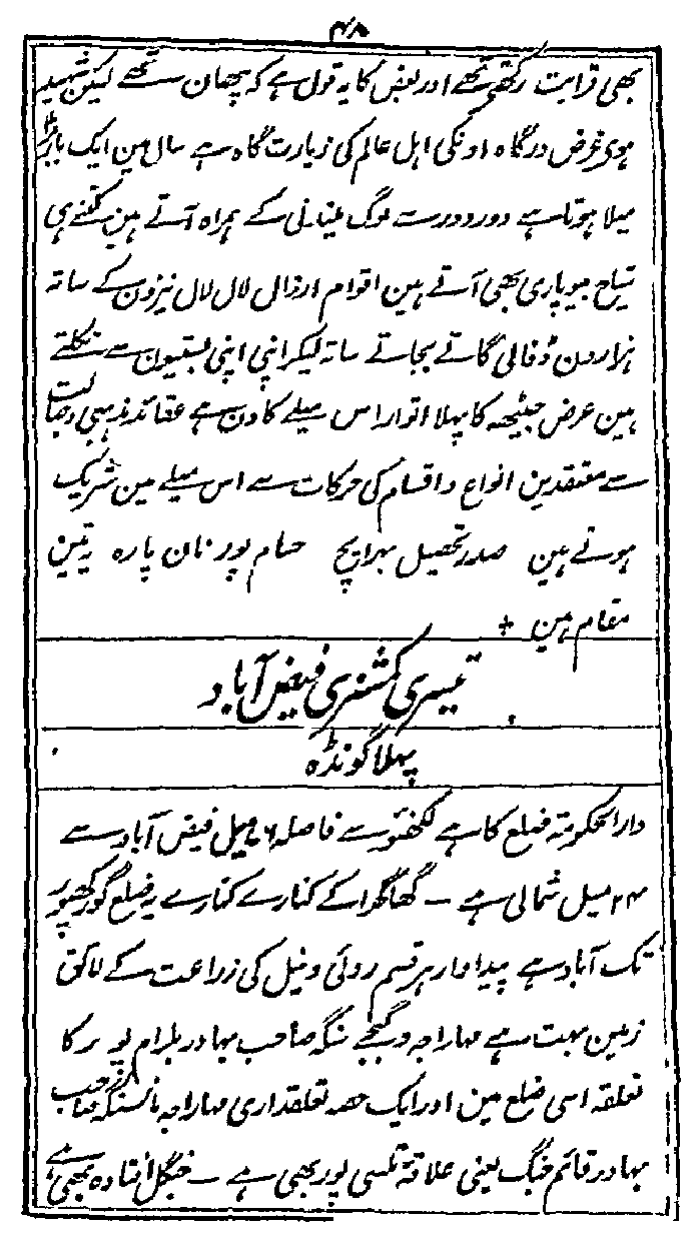 ۴۸
بھی قرابت رکھتے تھے اور بعض کا یہ قول ہے کہ پٹھان تھے لیکن شہید
ہوی غرض درگاہ اونکی اہل عالم کی زیارت گاہ ہے سال مین ایک بار بڑا
میلا ہوتا ہے دور دور سے لوگ میدنی کے ہمراہ آتے ہین کتنے ہی
سیاح بیوپاری بھی آتے ہین اقوام ارذال لال لال نیزون کے ساتہ
ہزارون ڈفالی گاتے بجاتے ساتہ لیکر اپنی اپنی بستیون سے نکلتے
ہین غرض جیٹھہ کا پہلا اتوار اس میلے کا دن ہے عقائد مذہبی وجہالت
سے معتقدین انواع واقسام کی حرکات سے اس میلے مین شریک
ہوتے ہین صدر تحصیل بہرایچ حسام پور نان پارہ یہ تین
مقام ہین +
تیسری کمشنری فیض آباد
پہلا گونڈہ
دار الحکومتہ ضلع کا ہے لکھنؤ سے فاصلہ میل فیض آباد سے
۲۴ میل شمالی ہے – گھاگرا کے کنارے کنارے یہ ضلع گورکھپور
تک آباد ہے پیداوار ہر قسم روئی ونیل کی زراعت کے لائق
زمین بہت ہے مہاراجہ دگبجے سنگہ صاحب بہادر بلرام پور کا
تعلقہ اسی ضلع مین اور ایک حصہ تعلقداری مہاراجہ مانسنگہ صاحب
بہادر قائم جنگ یعنی علاقۂ تلسی پور بھی ہے – جنگل افتادہ بھی ہے